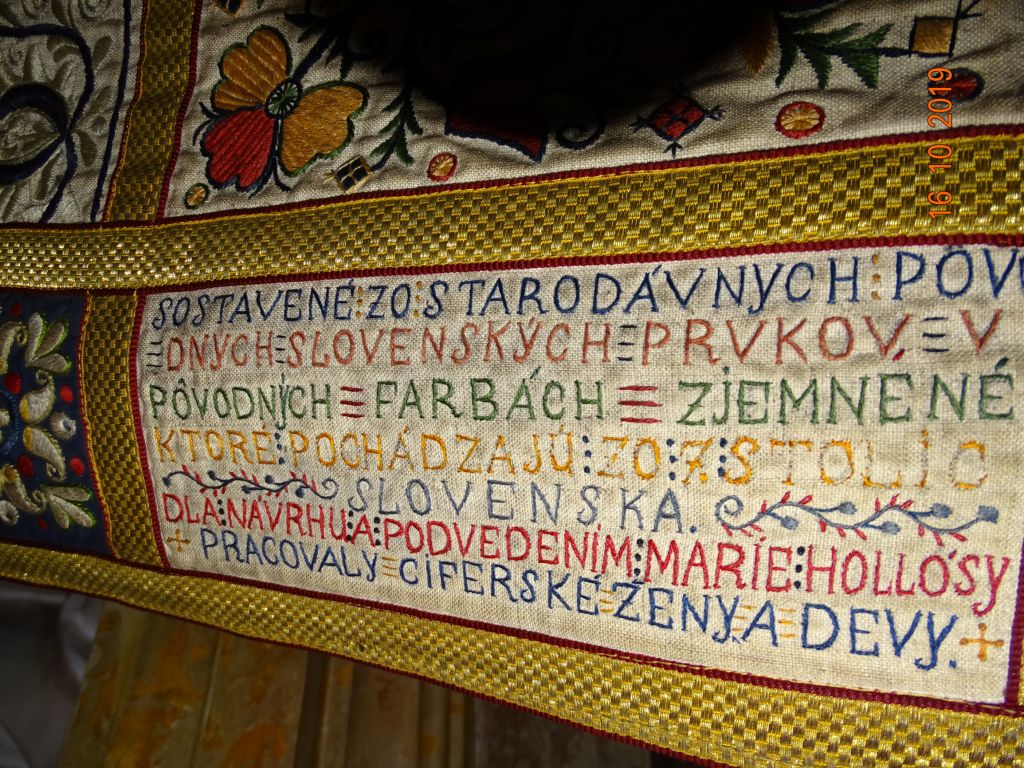 SOSTAVENÉ:ZO:STARODÁVNYCH:PÔV
DNÝCH SLOVENSKÝCH PRVKOV, V
PÔVODNÝCH FARBÁCH ZJEMNENÉ
KTORÉ:POCHÁDZAJÚ:ZO:7:STOLÍC
SLOVENSKA.
DLA:NÁVRHU:A:PODVEDENÍM:MARIE:HOLLÓSY
+ PRACOVALY=CIFERSKÉ=ŽENY=A=DEVY.+
16 10 2019